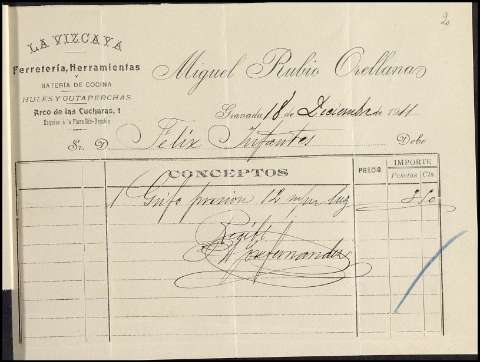 2
LA VIZCAYA
Ferretería, Herramientas
Y
BATERÍA DE COCINA
HULES Y GUTAPERCHAS
Arco de las Cucharas, 1
Miguel Rubio Orellana
Granada 18 de Diciembre de 1911
Sr. D. Felix Infantes Debe
CONCEPTOS PRECIO IMPORTE
Pesetas Cts.
1 Grifo presion 12 m/m luz
Recibí